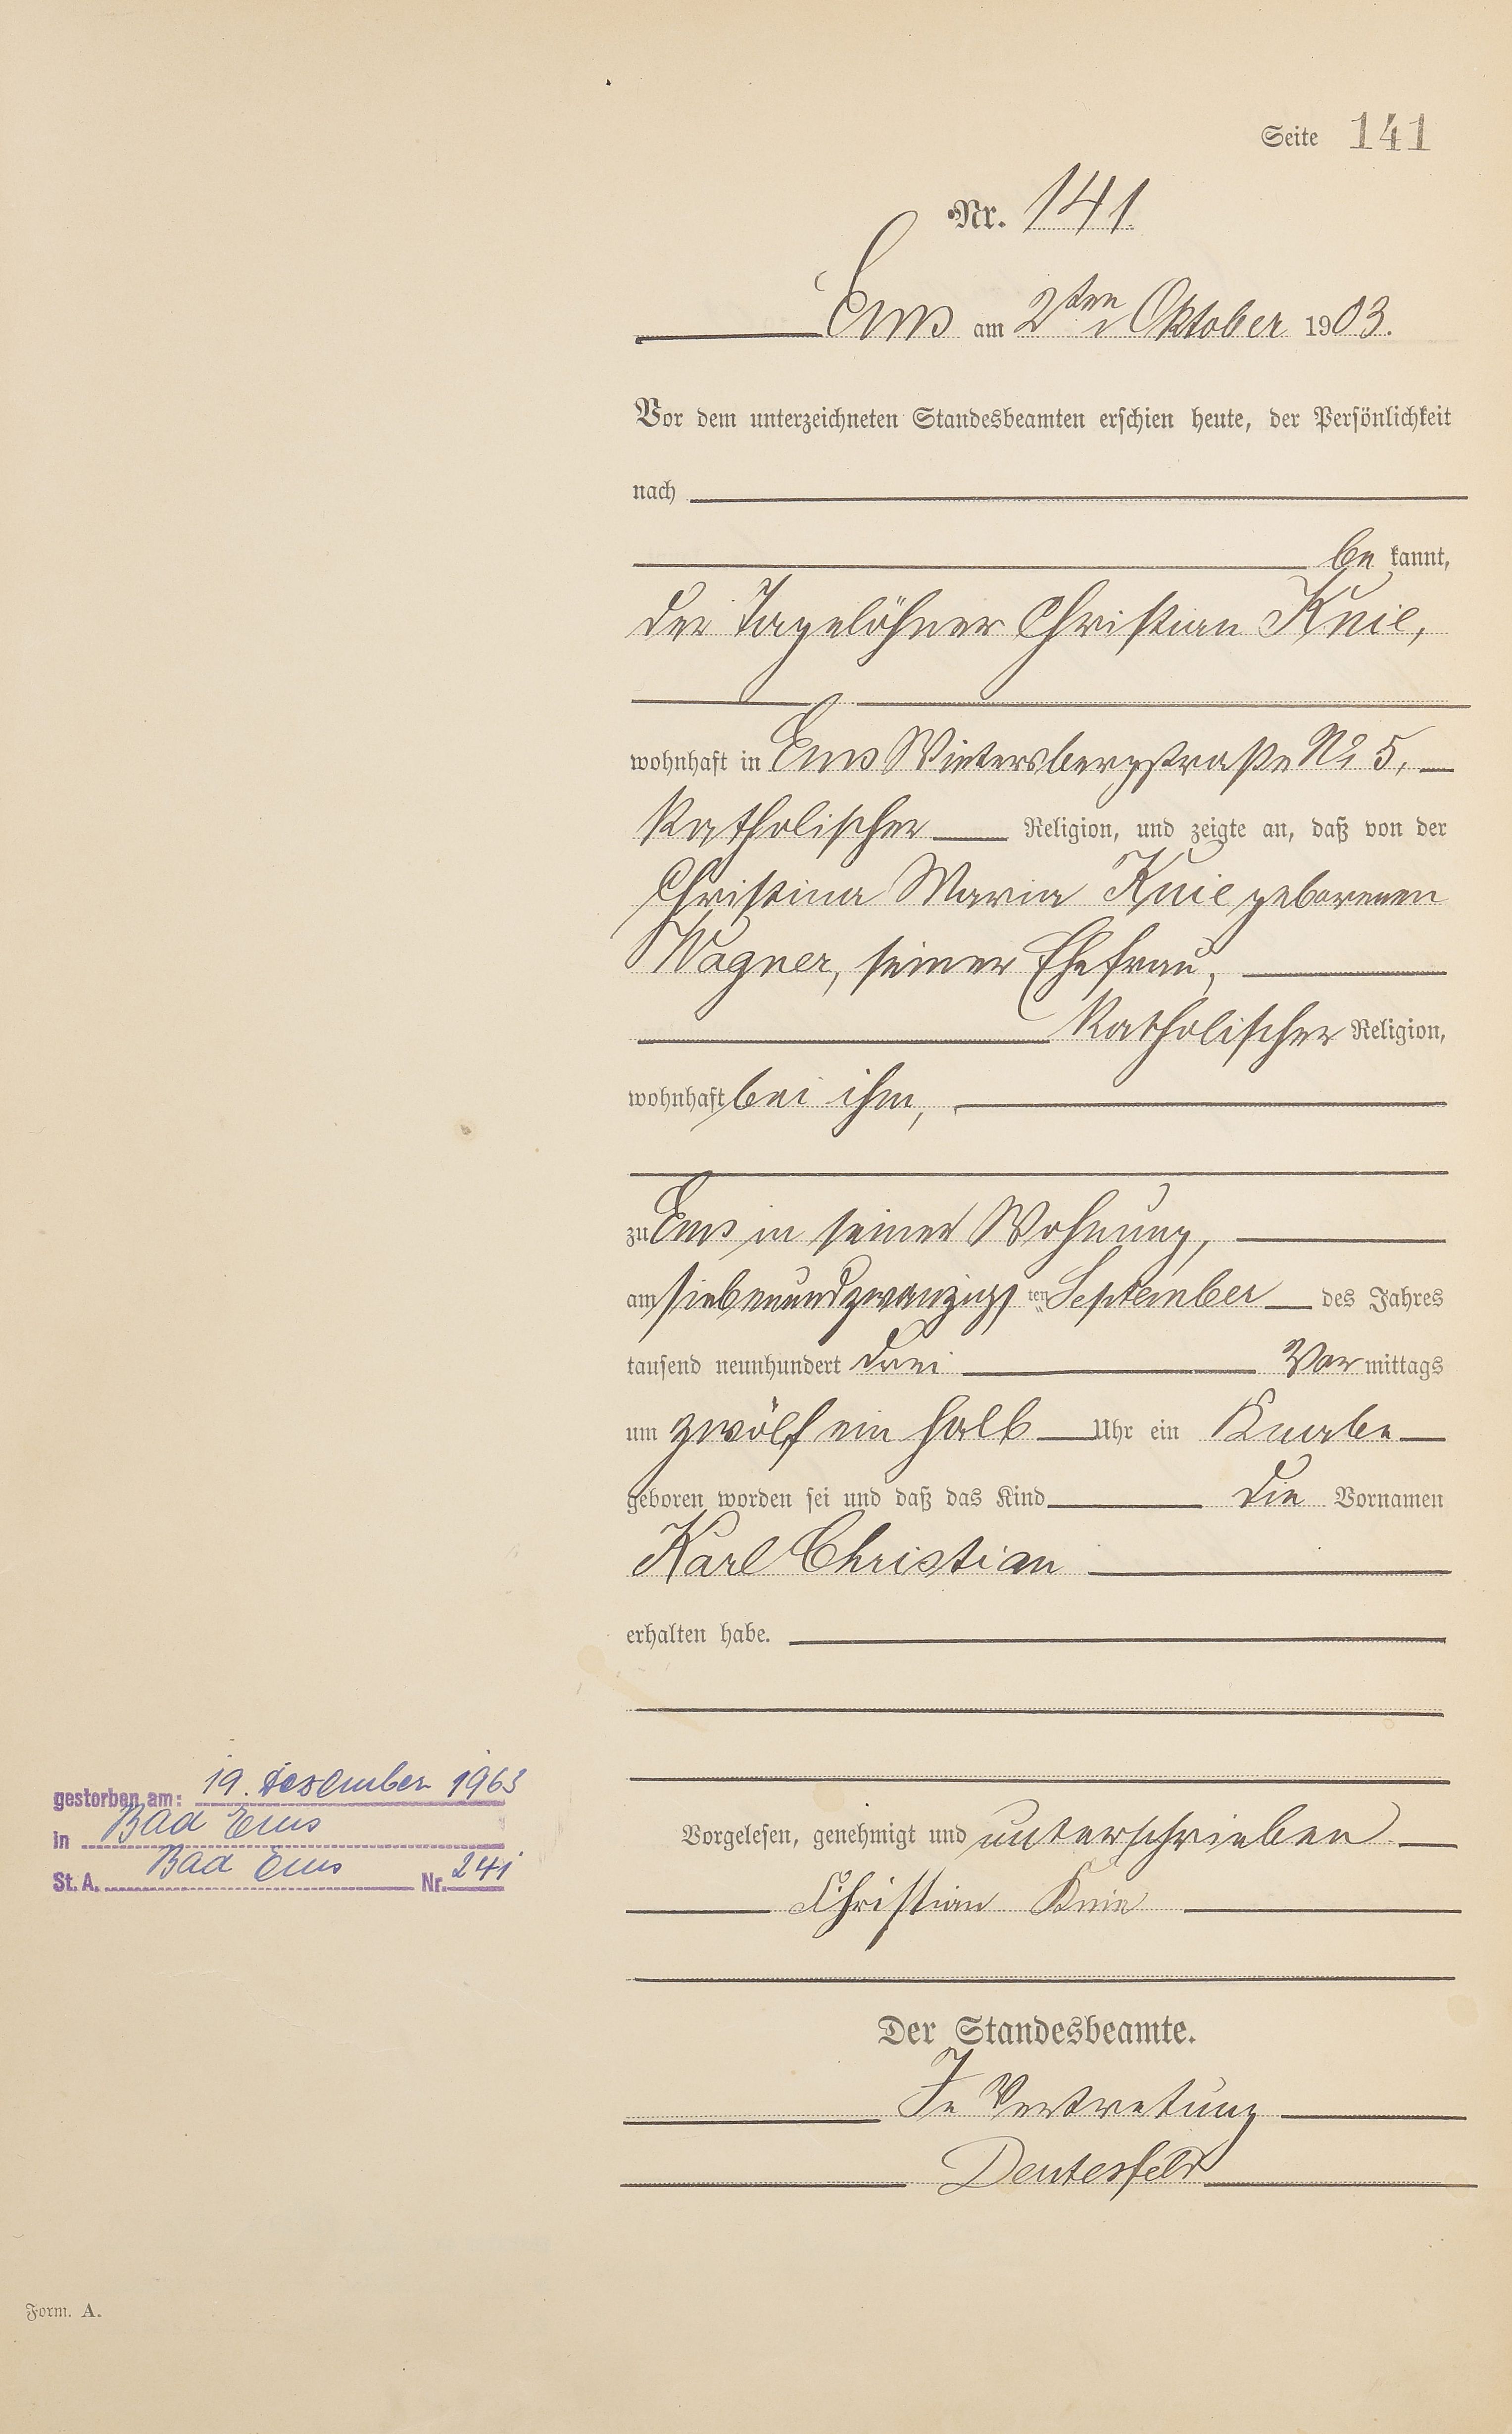 Seite 141
Nr. 141.
Ems am 2ten Oktober 1903.
Vor dem unterzeichneten Standesbeamten erschien heute, der Persönlichkeit
nach
be kannt,
der Tagelöhner Christian Knie,
wohnhaft in Ems Wintersbergstraße No 5,
katholischer Religion, und zeigte an, daß von der
Christina Maria Knie geborenen
Wagner, seiner Ehefrau,
katholischer Religion,
wohnhaft bei ihm,
zu Ems in seiner Wohnung,
am siebenundzwanzigsten September des Jahres
tausend neunhundert drei Vormittags
um zwölf ein halb Uhr ein Knabe
geboren worden sei und daß das Kind die Vornamen
Karl Christian
erhalten habe.
gestorben am: 19. Dezember 1963
in Bad Ems
St. A. Bad Ems Nr. 241
Vorgelesen, genehmigt und unterschrieben
Christian Knie
Der Standesbeamte.
In Vertretung
Deutesfeld
Form. A.